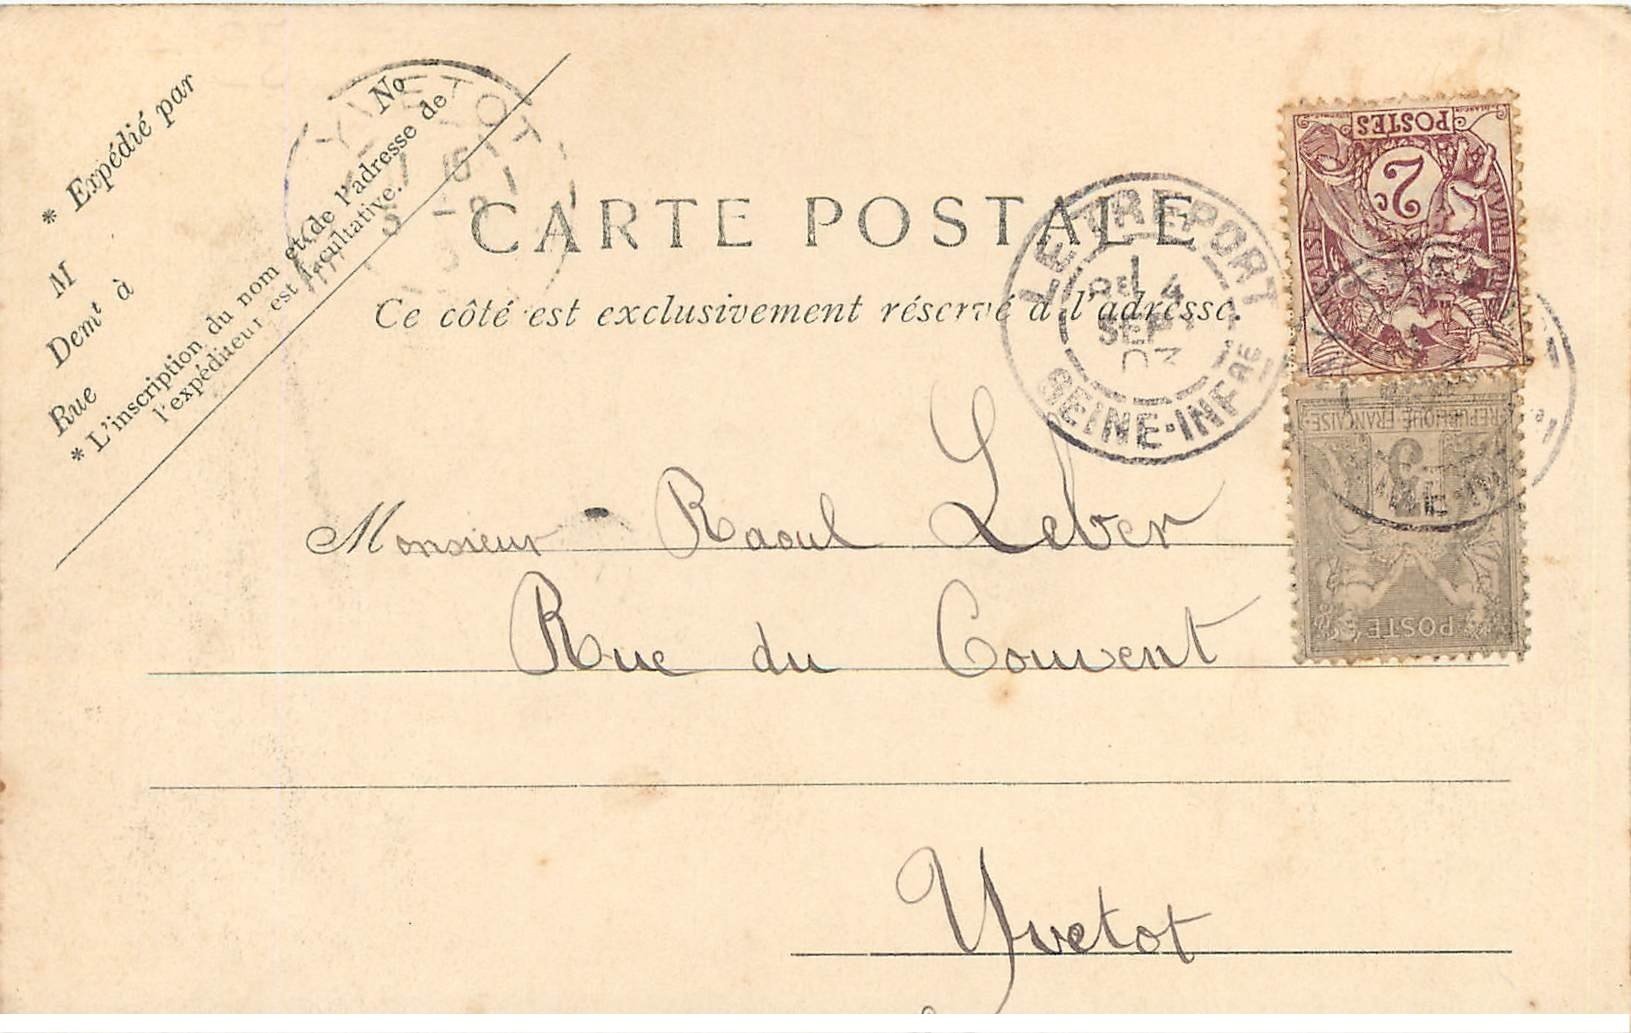 * Expédié par
M
Demt à
Rue
No
* L'inscription du nom et de l'adresse de
l'expéditeur est facultative.
YVETOT
CARTE POSTALE
Ce côté est exclusivement réservé à l'adresse.
LE TREPORT
4
SEPT
03
SEINE-INFRE
POSTES
2c
REPUBLIQUE FRANÇAISE
POSTE
Monsieur Raoul Leber
Rue du Couvent
Yvetot